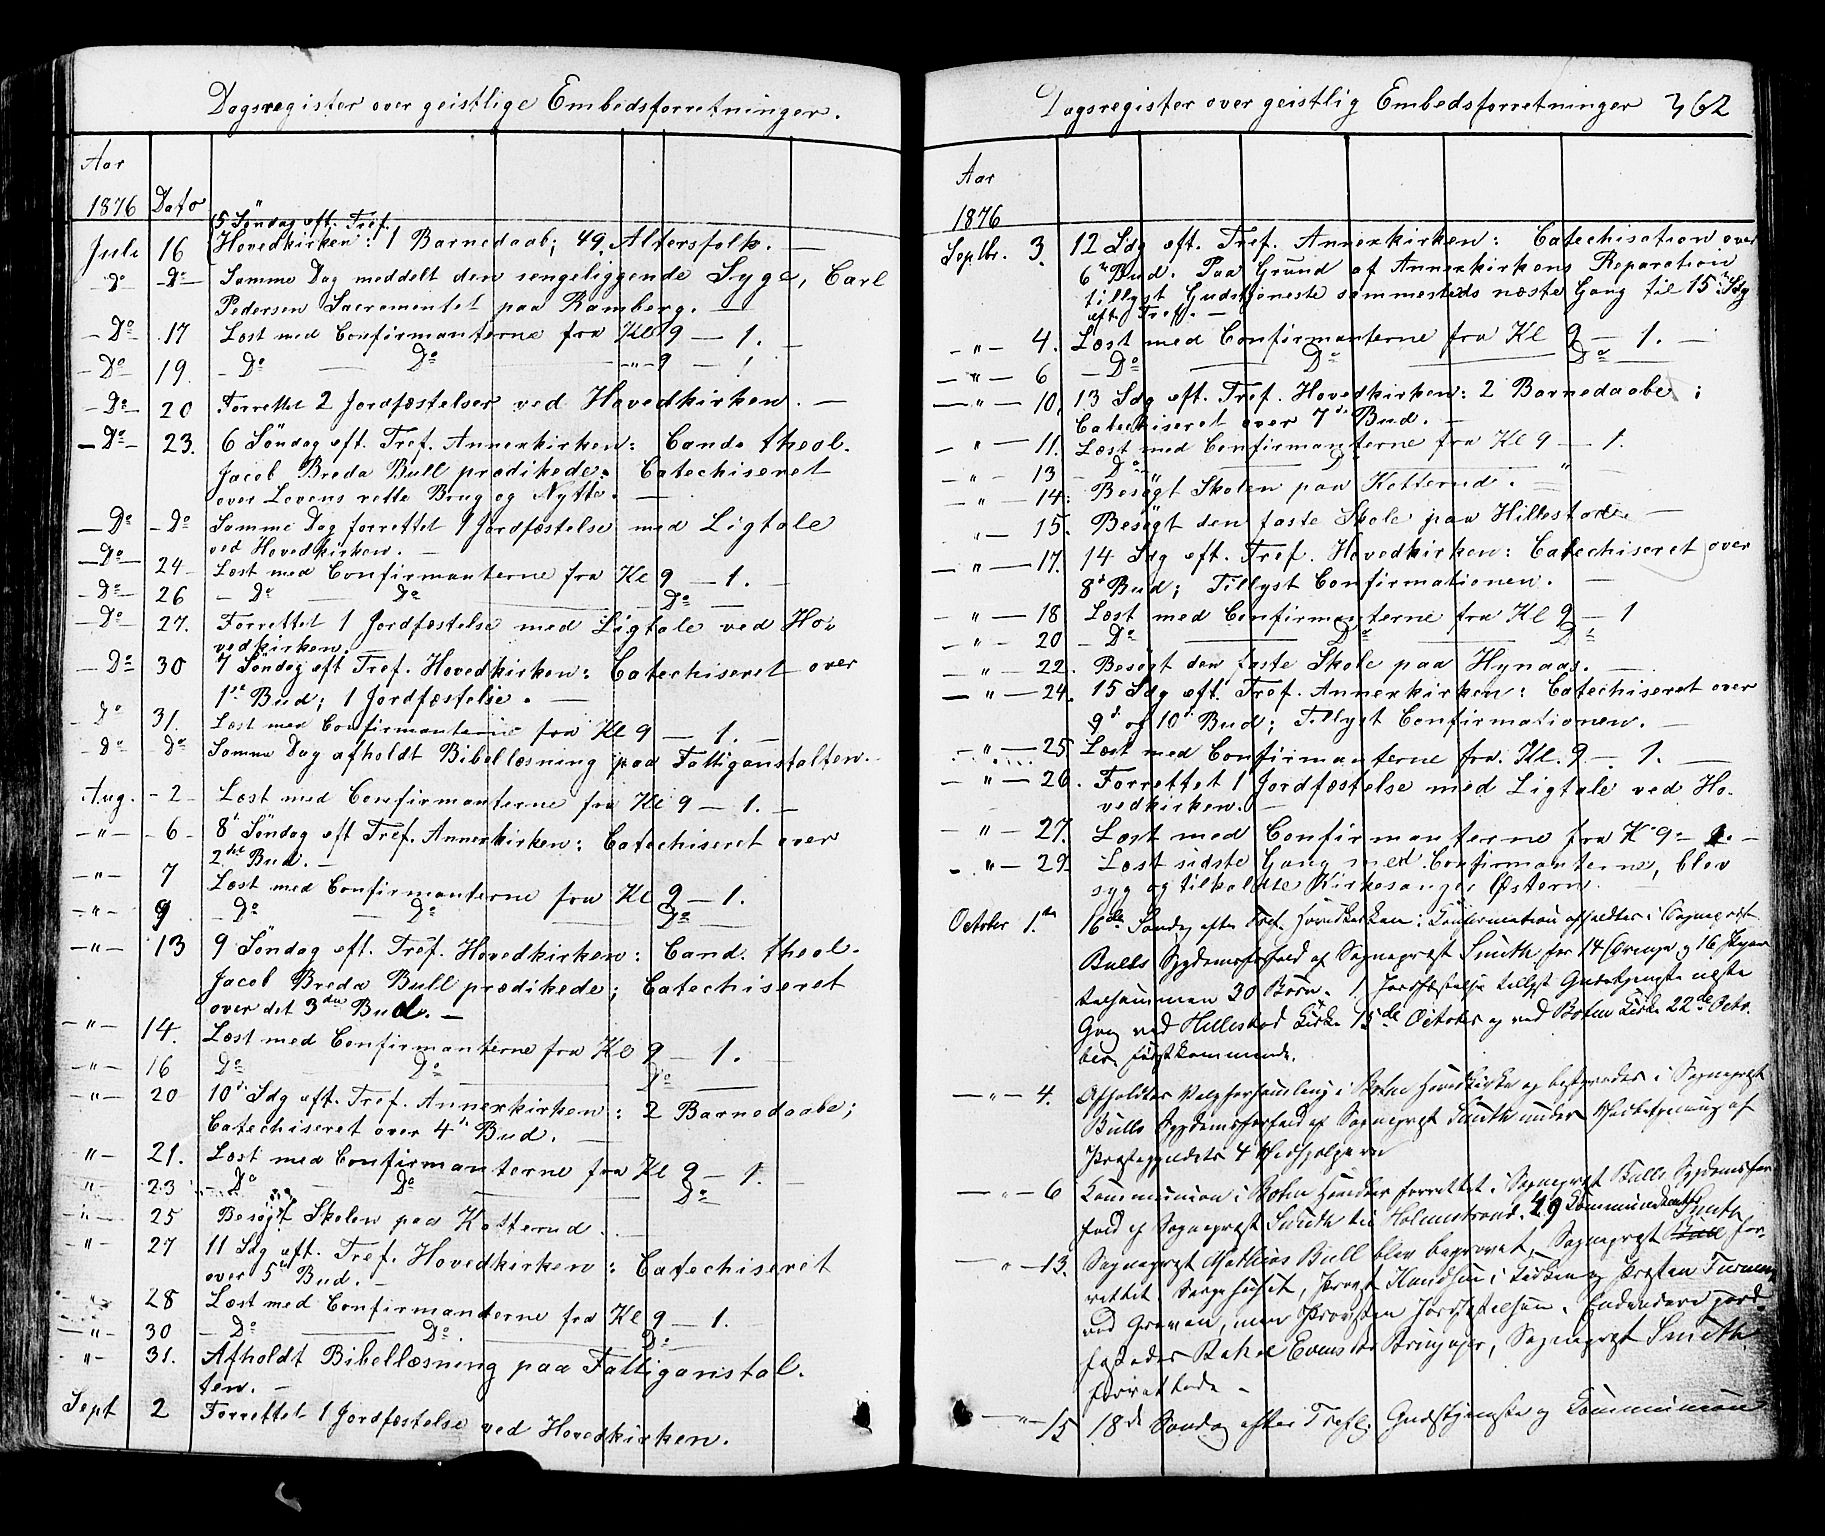 Dagsregister over geistlige Embedsforretninger.
Aar
1876 Dato
5 Söndag eft. Tref.
Juli 16 Hovedkirken: 1 Barnedaab; 49 Altersfolk. —
Do -Do- Samme Dag meddelt den sengeliggende Syge, Carl
Pedersen Sacramentet paa Ramberg. —
-Do- 17 Læst med Confirmanterne fra Kl 9 — 1. —
-Do- 19. -Do — Do -"- 9 — 1
-Do- 20 Forrettet 2 Jordfæstelser ved Hovedkirken. —
-Do- 23. 6 Söndag eft. Tref. Annexkirken: Cand. theol.
Jacob Breda Bull prædikede. Catechiseret
over Lovens rette Brug og Nytte. —
-Do- -Do Samme Dag forrettet 1 Jordfæstelse med Ligtale
ved Hovedkirken. —
-Do- 24 Læst med Confirmanterne fra Kl 9 — 1. —
-Do- 26 -Do — Do — Do —
-Do- 27. Forrettet 1 Jordfæstelse med Ligtale ved Ho-
vedkirken. —
-Do 30 7 Söndag eft Tref. Hovedkirken: Catechiseret over
1ste Bud; 1 Jordfæstelse. —
Do 31. Læst med Confirmanterne fra Kl 9 — 1. —
Do Do Samme Dag afholdt Bibellæsning paa Fattiganstalten. -
Aug. -2- Læst med Confirmanterne fra Kl 9 — 1. —
-"- -6- 8 Söndag eft Tref. Annexkirken: Catechiseret over
2det Bud. —
-"- 7 Læst med Confirmanterne fra Kl 9 — 1.
-"- 9 -Do — Do — Do
-"- 13 9 Söndag eft. Tref. Hovedkirken: Cand. theol.
Jacob Breda Bull prædikede; Catechiseret
over det 3die Bud. —
-"- 14. Læst med Confirmanterne fra Kl 9 — 1. —
-"- 16 Do — Do — Do —
-"- 20 10 Sdg eft. Tref. Annexkirken: 2 Barnedaabe;
Catechiseret over 4 Bud. —
" 21. Læst med Confirmanterne fra Kl 9 — 1.
" 23 -Do — Do — Do
" 25 Besögt Skolen paa Kotterud.
" 27 11 Sdg eft. Tref. Hovedkirken: Catechiseret
over 5 Bud. —
28 Læst med Confirmanterne fra Kl 9 — 1.
-"- 30 -Do — Do. — Do —
" 31. Afholdt Bibellæsning paa Fattiganstal.
ten. —
Sept 2 Forrettet 1 Jordfæstelse ved Hovedkirken.
Dagsregister over geistlig Embedsforretninger 362
Aar
1876
Septbr. 3. 12 Sdg eft. Tref. Annexkirken: Catechisation over
6 Bud. Paa Grund af Annexkirkens Reparation
tillyst Gudstjeneste sammesteds næste Gang til 15 Sdg
eft. Tref. —
-"- 4. Læst med Confirmanterne fra Kl 9 — 1. —
-"- 6 -Do — Do — Do —
-"- 10. 13 Sdg eft. Tref. Hovedkirken: 2 Barnedaabe;
Catechiseret over 7 Bud. —
" 11. Læst med Confirmanterne fra Kl 9 — 1.
-"- 13 -Do " — " —
-"- 14. Besögt Skolen paa Kotterud. —
-"- 15. Besögt den faste Skole paa Hillestad. —
-"- 17. 14 Sdg eft. Tref. Hovedkirken: Catechiseret over
8 Bud; Tillyst Confirmationen. —
-"- 18 Læst med Confirmanterne fra Kl 9 — 1
-"- 20 -Do — Do — Do
-"- 22. Besögt den faste Skole paa Hynaas. —
-"- 24. 15 Sdg eft. Tref. Annexkirken: Catechiseret over
9 og 10 Bud; Tillyst Confirmationen. —
-"- 25 Læst med Confirmanterne fra Kl. 9 — 1. —
-"- 26. Forrettet 1 Jordfæstelse med Ligtale ved Ho-
vedkirken. —
-"- 27. Læst med Confirmanterne fra Kl 9 — 1. —
-"- 29. Læst sidste Gang med Confirmanterne, blev
syg og tilkaldte Kirkesanger Østern.
October 1. 16de Söndag efter Tref. Hovedkirken: Confirmation afholdtes i Sognepræst
Bulls Sygdomsforfald af Sognepræst Smith for 14 Drenge og 16 Piger
tilsammen 30 Börn. 1 Jordfæstelse tillyst Gudstjeneste næste
Gang ved Hillestad Kirke 15de October og ved Botne Kirke 22de Octo-
ber förstkommende.
-"- 4. Afholdtes Valgforsamling i Botne Hovedkirke og bestyredes i Sognepræst
Bulls Sygdomsforfald af Sognepræst Smith under Medvirkning af
Præstegjeldets 4 Medhjælpere
-"- 6 Communion i Botne Hovedkirke forrettet i Sognepræst Bulls Sygdomsfor-
fald af Sognepræst Smith til Holmestrand. 29 Communicanter
-"- 13. Sognepræst Mathias Bull blev begravet, Sognepræst Bull Smith for-
rettet i Sørgehuset, Provst i Kirken og Præsten
ved Graven, men Provsten Jordfæstelsen. Endvidere jord-
fæstedes Evensdtr, Sognepræst Smith
forrettede —
-"- 15 18de Söndag efter Tref. Gudstjeneste og Communion